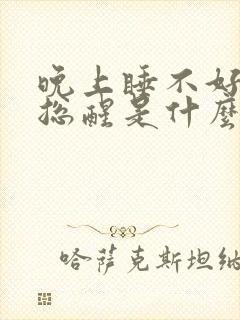 晚上睡不好
总醒是什麼
哈萨克斯坦纳